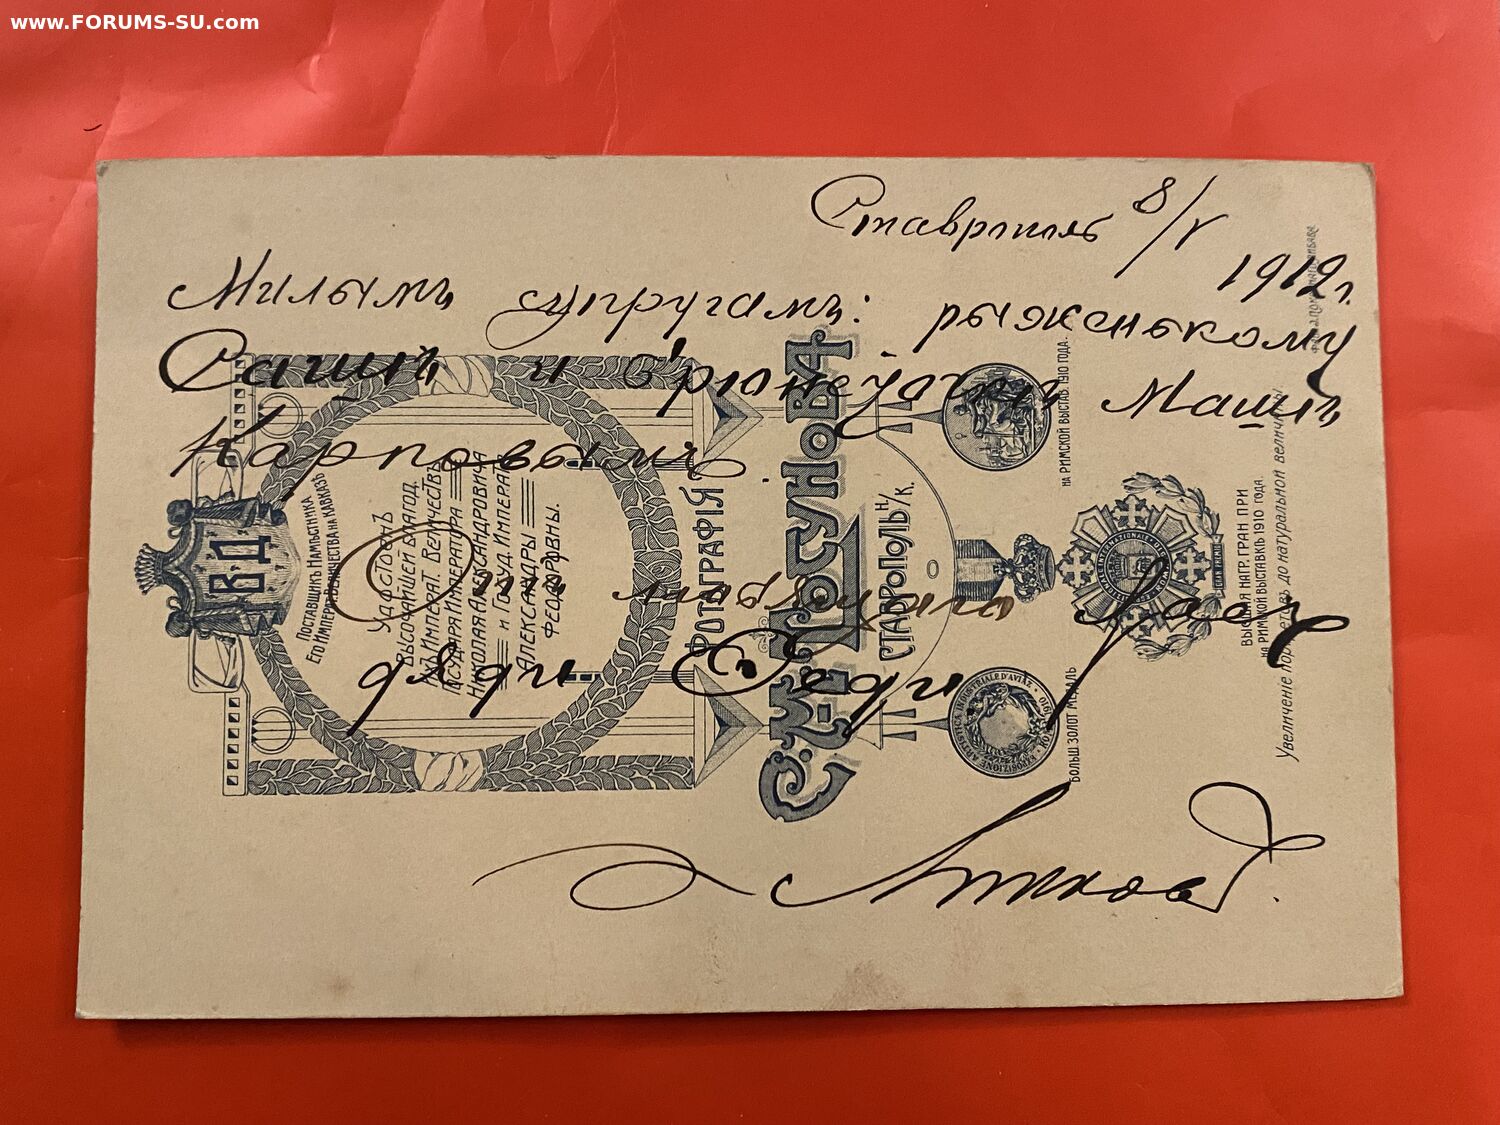 www.FORUMS-SU.com
Ставрополь 8/V
1912г.
Милымъ супругамъ: рыженькому
Сашѣ и брюнеточкѣ Машѣ
Карповымъ
Отъ
дяди Феди
В.Д
Поставщикъ Намѣстника
Его Импер. Величества на Кавказѣ
Удостоенъ
Высочайшей благод.
Ихъ Императ. Величествъ
Государя Императора
Николая Александровича
и Госуд. Императ.
Александры
Феодоровны.
Фотографія
С. И. Тосунова
Ставрополь н/К.
на Римской выстав. 1910 года.
Больш. Золот. медаль
Высшая нагр. Гран при
на Римской выставкѣ 1910 года.
Увеличеніе портретовъ до натуральной величины